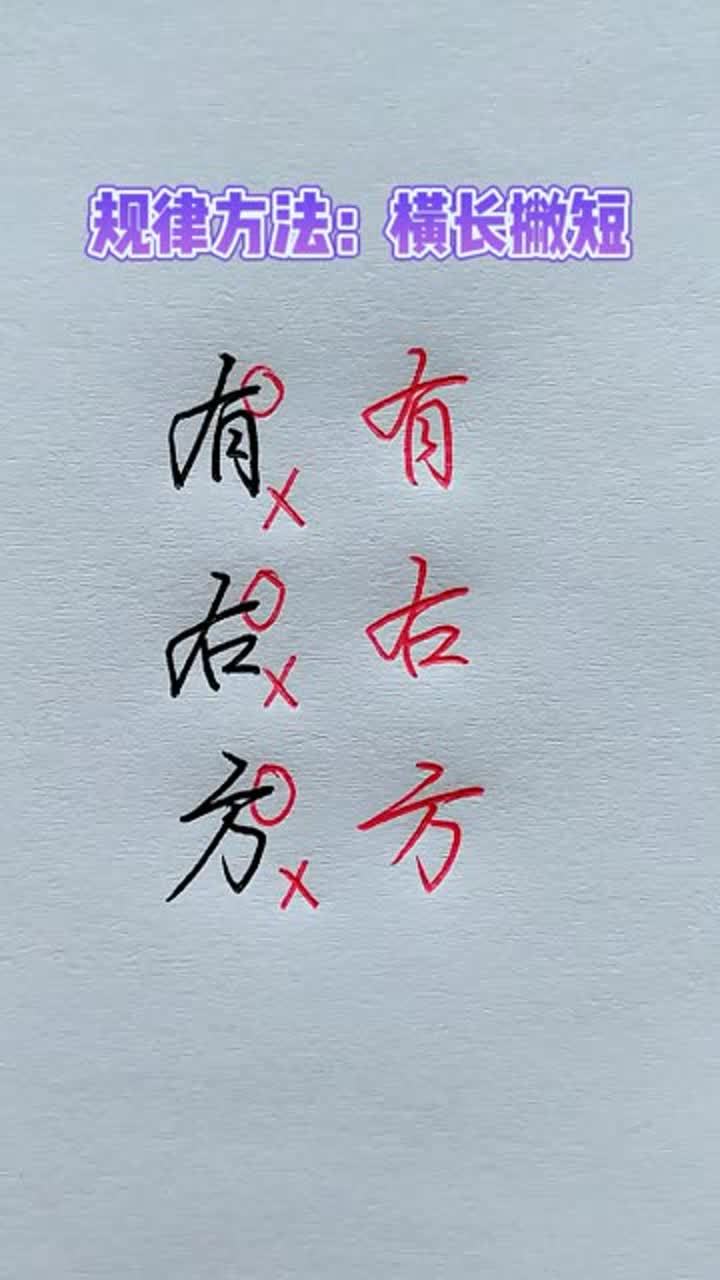 规律方法：横长撇短
有 有
右 右
方 方